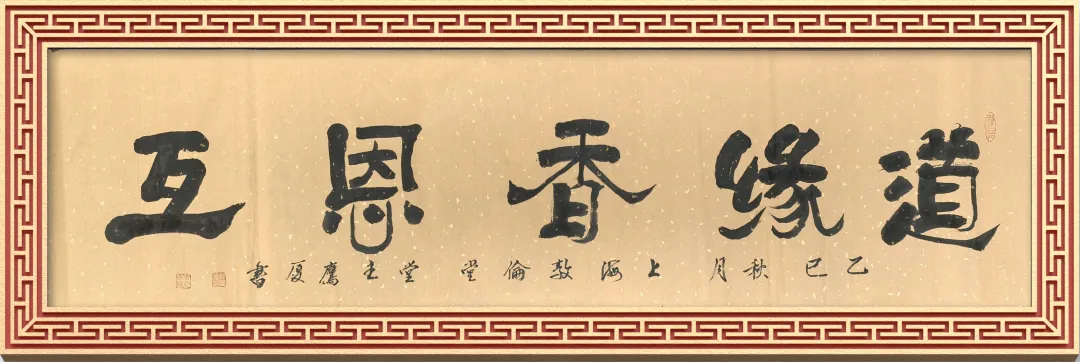 道缘香恩互
乙巳秋月上海敦倫堂堂主鹰厦書